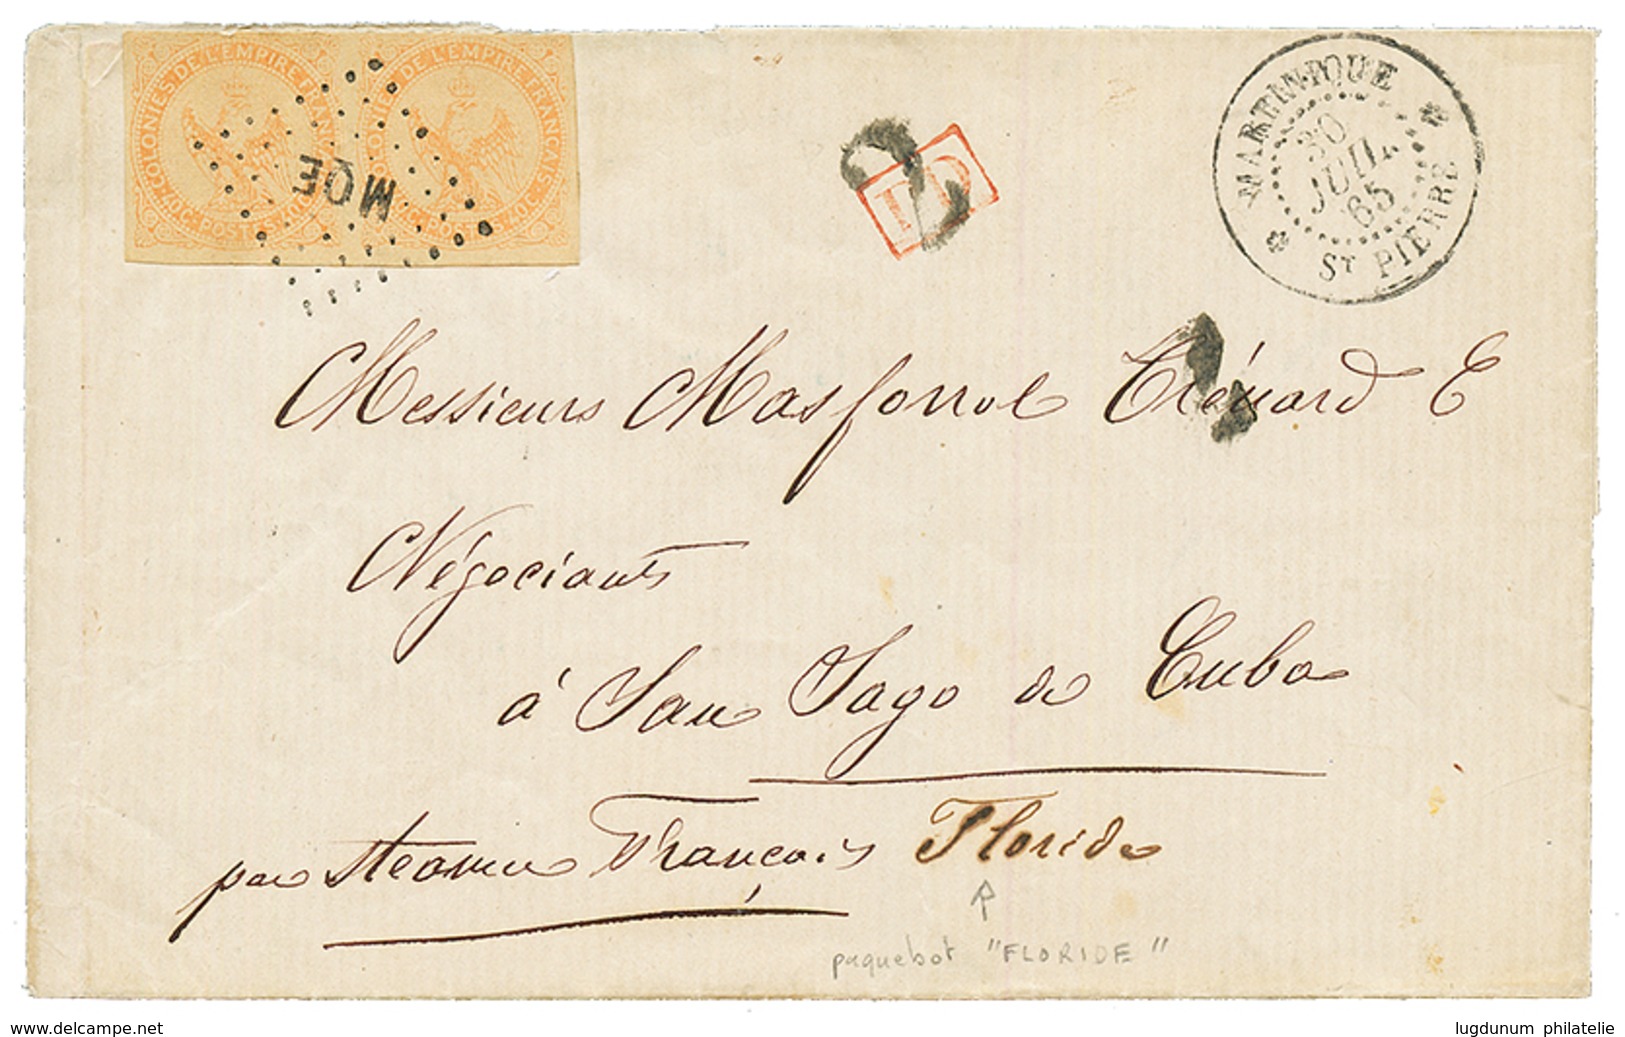 COLONIES DE L'EMPIRE FRANÇAIS
40C. POSTES 40C.
COLONIES DE L'EMPIRE FRANÇAIS
40C. POSTES 40C.
MQE
PD
MARTINIQUE
30
JUIL.
65
ST PIERRE
Messieurs Masforrol Trénard C
Négociants
à San Jago de Cuba
par steamer Français Floride
paquebot "FLORIDE"
www.delcampe.net
lugdunum philatelie